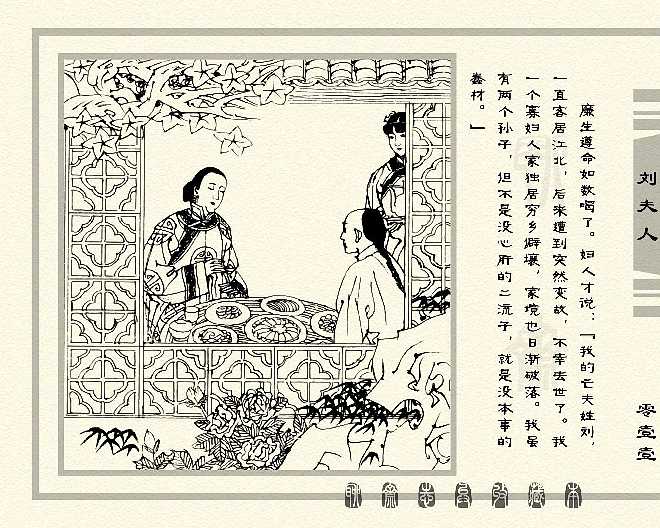 刘夫人
零壹壹
廉生遵命如数喝了。妇人才说：「我的亡夫姓刘，
一直客居江北，后来遭到突然变故，不幸去世了。我
一个寡妇人家独居穷乡僻壤，家境也日渐破落。我虽
有两个孙子，但不是没心肝的二流子，就是没本事的
蠢材。」
聊斋志异收藏本